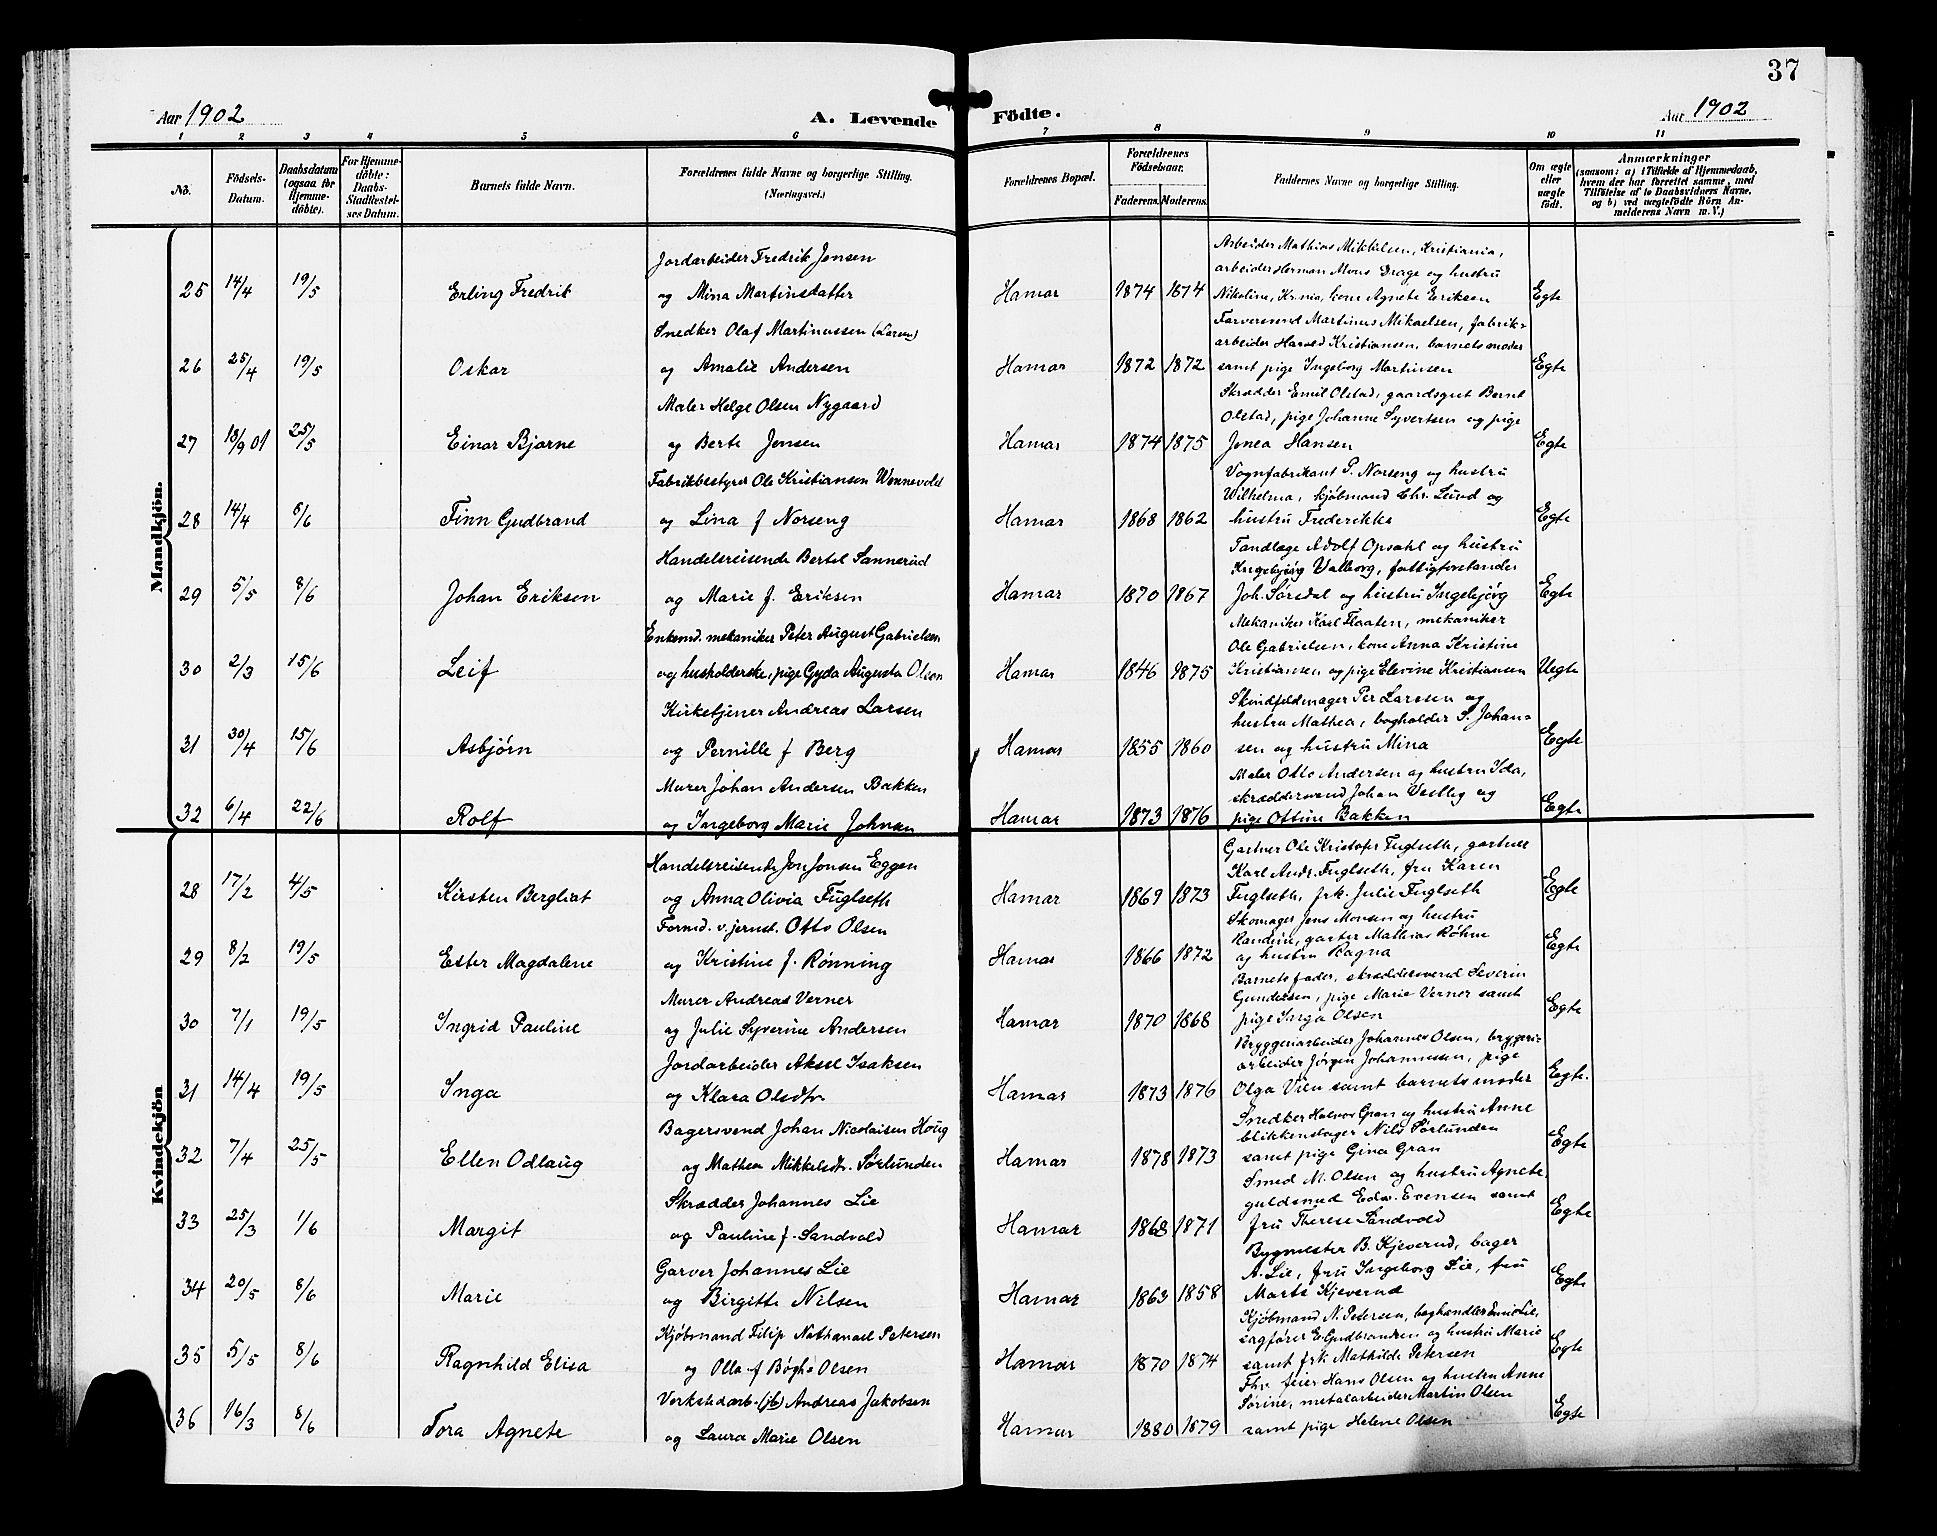 37
Aar 1902
A. Levende Födte.
Aar 1902
1 2 3 4 5 6 7 8 9 10 11
No.
Födsels-Datum.
Daabsdatum (ogsaa for Hjemme-döbte).
For Hjemme-döbte: Daabs-Stadfæstel-ses Datum.
Barnets fulde Navn.
Forældrenes fulde Navne og borgerlige Stilling.
(Næringsvei.)
Forældrenes Bopæl.
Forældrenes Födselsaar.
Faderens. Moderens.
Faddernes Navne og borgerlige Stilling.
Om ægte eller uægte födt.
Anmærkninger
(saasom: a) i Tilfælde af Hjemmedaab,
hvem der har forrettet samme, med
Tilföielse af to Daabsvidners Navne,
og b) ved uægtefödte Börn An-
melderens Navn m. V.)
Mandkjön.
Jordarbeider Fredrik Jensen
25 14/4 19/5 Erling Fredrik og Mina Martinsdatter Hamar 1874 1874 Egte
Arbeider Mathias Mikkelsen, Kristiania,
arbeider Herman Mons Drage og hustru
Nikoline, Kr.nia, kone Agnete Eriksen
Snedker Olaf Martinussen
26 25/4 19/5 Oskar og Amalie Andersen Hamar 1872 1872 Egte
Farversvend Martinus Mikaelsen, fabrik-
arbeider Harald Kristiansen, barnets moder
samt pige Ingeborg Martinsen
Maler Helge Olsen Nygaard
27 18/9 01 25/5 Einar Bjarne og Berte Jensen Hamar 1874 1875 Egte
Skrædder Emil Olstad, gaardsgut Bernt
Olstad, pige Johanne Syvertsen og pige
Jenea Hansen
Fabrikbestyrer Ole Kristiansen Wennevold
28 14/4 8/6 Finn Gudbrand og Lina f Norseng Hamar 1868 1862 Egte
Vognfabrikant P. Norseng og hustru
Wilhelma, kjøbmand Chr. Lund og
hustru Frederikke
Handelsreisende Bertel Sannerud
29 5/5 8/6 Johan Eriksen og Marie f. Eriksen Hamar 1870 1867 Egte
Tandlæge Adolf Opsahl og hustru
Ingebjørg Valborg, fattigforstander
Joh. Sørdal og hustru Ingebjørg
Enkemd. mekaniker Peter August Gabrielsen
30 2/3 15/6 Leif og husholderske, pige Gyda Augusta Olsen Hamar 1846 1875 Uegte
Mekaniker Karl Flaaten, mekaniker
Ole Gabrielsen, kone Anna Kristine
Kristiansen og pige Elevine Kristiansen
Kirketjener Andreas Larsen
31 30/4 15/6 Asbjørn og Pernille f Berg Hamar 1855 1860 Egte
Skindfeldmager Per Larsen og
hustru Mathea, bogholder S. Johan-
sen og hustru Mina
Murer Johan Andersen Bakken
32 6/4 22/6 Rolf og Ingeborg Marie Johnsen Hamar 1873 1876 Egte
Maler Otto Andersen og hustru Ida,
skræddersvend Johan Vestby og
pige Ottine Bakken
Kvindekjön
Handelsreisende Jon Jonsen Eggen
28 17/2 4/5 Kirsten Bergliot og Anna Olivia Fuglseth Hamar 1869 1873 Egte
Gartner Ole Kristofer Fuglseth, gartner
Karl Andr. Fuglseth, fru Karen
Fuglseth, frk. Julie Fuglseth
Formd. v. jernst. Otto Olsen
29 8/2 19/5 Ester Magdalene og Kristine f. Rønning Hamar 1866 1872 Egte
Skomager Jens Monsen og hustru
Randine, garter Mathias Røhne
og hustru Ragna
Murer Andreas Verner
30 7/1 19/5 Ingrid Pauline og Julie Syverine Andersen Hamar 1870 1868 Egte
Barnets fader, skræddersvend Severin
Gundersen, pige Marie Verner samt
pige Inga Olsen
Jordarbeider Aksel Isaksen
31 14/4 19/5 Inga og Klara Olsdtr Hamar 1873 1876 Egte.
Bryggeriarbeider Johannes Olsen, bryggeri-
arbeider Jørgen Johannessen, pige
Olga Vien samt barnets moder
Bagersvend Johan Nicolaisen Houg
32 7/4 25/5 Ellen Odlaug og Mathea Mikkelsdtr. Sørlunden Hamar 1878 1873 Egte
Snedker Halvor Gran og hustru Anne
blikkenslager Nils Sørlunden
samt pige Gina Gran
Skrædder Johannes Lie
33 25/3 1/6 Margit og Pauline f. Sandvold Hamar 1868 1871 Egte
Smed M. Olsen og hustru Agnete,
guldsmed Edv. Evensen samt
fru Therese Sandvold
Garver Johannes Lie
34 20/5 8/6 Marie og Birgitte Nilsen Hamar 1863 1858 Egte
Bygmester B. Kjeverud, bager
A. Lie, fru Ingeborg Lie, fru
Marte Kjeverud
Kjøbmand Filip Nathanael Petersen
35 5/5 8/6 Ragnhild Elisa og Olla f Bøghs Olsen Hamar 1870 1874 Egte
Kjøbmand N. Petersen, boghandler Lie,
sagfører E. Gudbrandsen og hustru Marie
samt frk Mathilde Petersen
Verkstedarb. (jb) Andreas Jakobsen
36 16/3 8/6 Tora Agnete og Laura Marie Olsen Hamar 1880 1879 Egte
Fhv. feier Hans Olsen og hustru Anne
Sørine, metalarbeider Martin Olsen
samt pige Helene Olsen